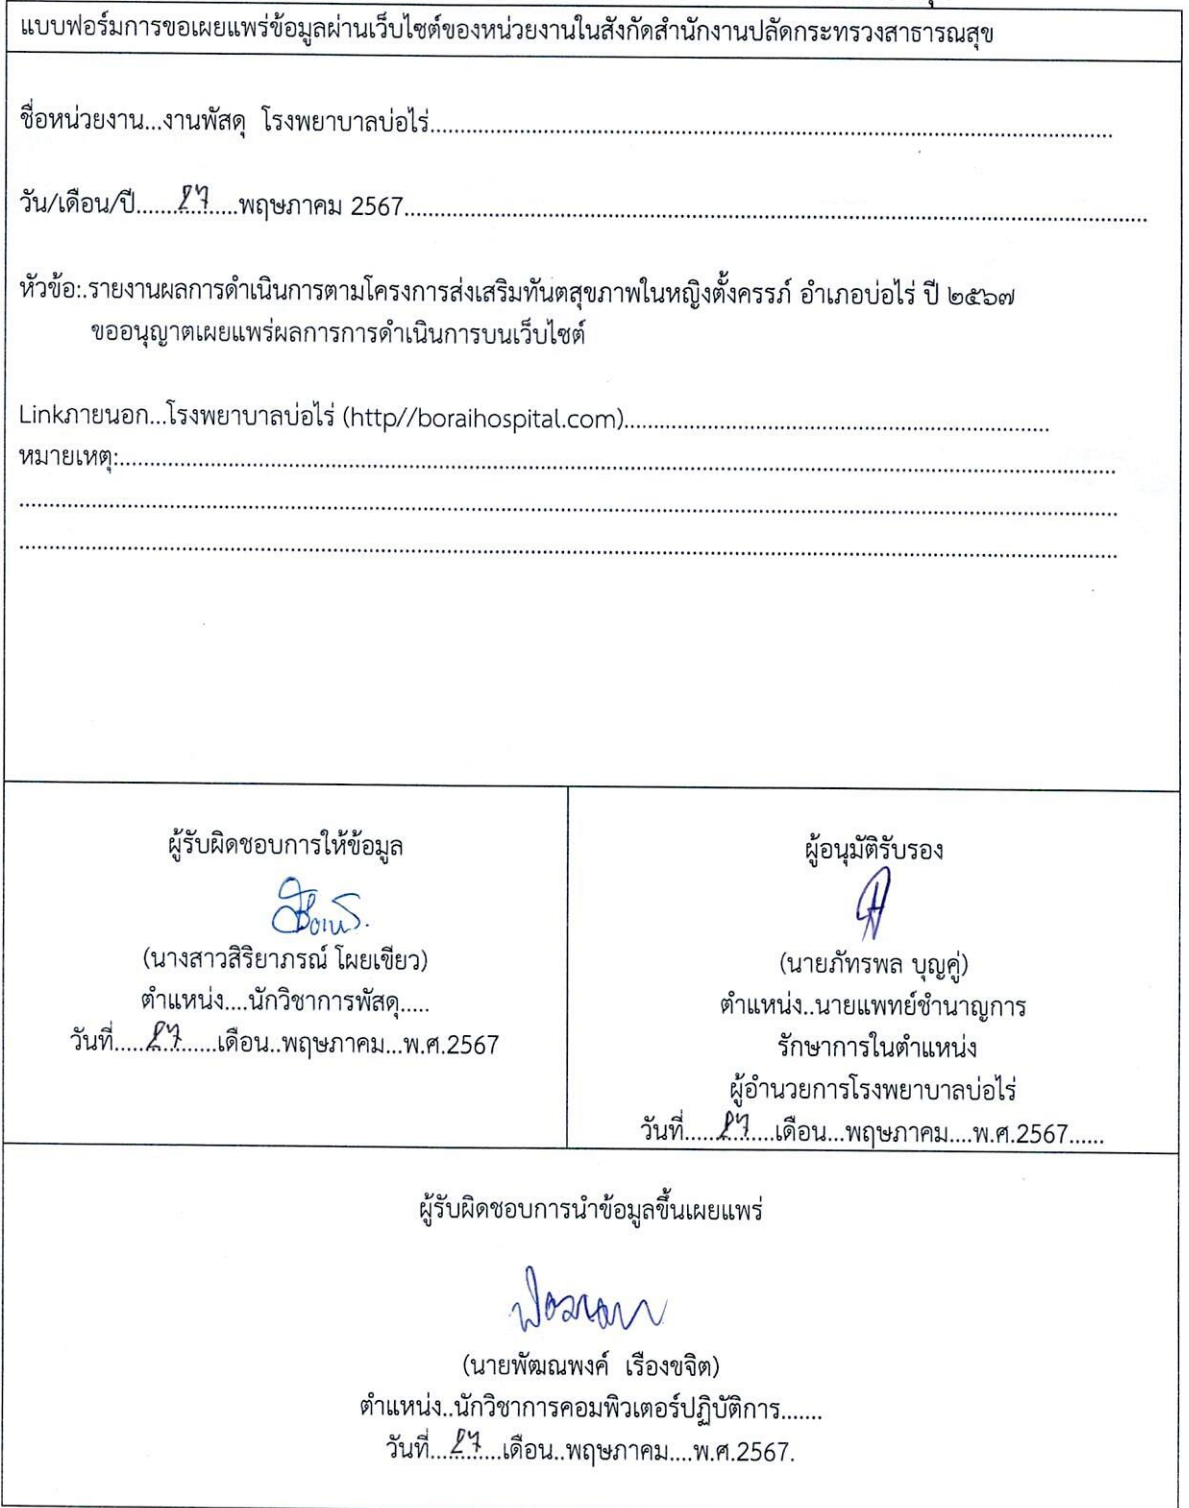 แบบฟอร์มการขอเผยแพร่ข้อมูลผ่านเว็บไซต์ของหน่วยงานในสังกัดสำนักงานปลัดกระทรวงสาธารณสุข
ชื่อหน่วยงาน...งานพัสดุ โรงพยาบาลบ่อไร่..........................................................................................................................
วัน/เดือน/ปี........27........พฤษภาคม 2567..........................................................................................................................
หัวข้อ:.รายงานผลการดำเนินการตามโครงการส่งเสริมทันตสุขภาพในหญิงตั้งครรภ์ อำเภอบ่อไร่ ปี ๒๕๖๗
ขออนุญาตเผยแพร่ผลการการดำเนินการบนเว็บไซต์
Linkภายนอก...โรงพยาบาลบ่อไร่ (http//boraihospital.com)..........................................................................
หมายเหตุ:..........................................................................................................................
..........................................................................................................................
..........................................................................................................................
ผู้รับผิดชอบการให้ข้อมูล
(นางสาวสิริยาภรณ์ โผยเขียว)
ตำแหน่ง....นักวิชาการพัสดุ.....
วันที่......27.......เดือน..พฤษภาคม...พ.ศ.2567
ผู้อนุมัติรับรอง
(นายภัทรพล บุญคู่)
ตำแหน่ง..นายแพทย์ชำนาญการ
รักษาการในตำแหน่ง
ผู้อำนวยการโรงพยาบาลบ่อไร่
วันที่......27......เดือน...พฤษภาคม....พ.ศ.2567......
ผู้รับผิดชอบการนำข้อมูลขึ้นเผยแพร่
(นายพัฒณพงค์ เรืองขจิต)
ตำแหน่ง..นักวิชาการคอมพิวเตอร์ปฏิบัติการ.......
วันที่...27.....เดือน..พฤษภาคม....พ.ศ.2567.